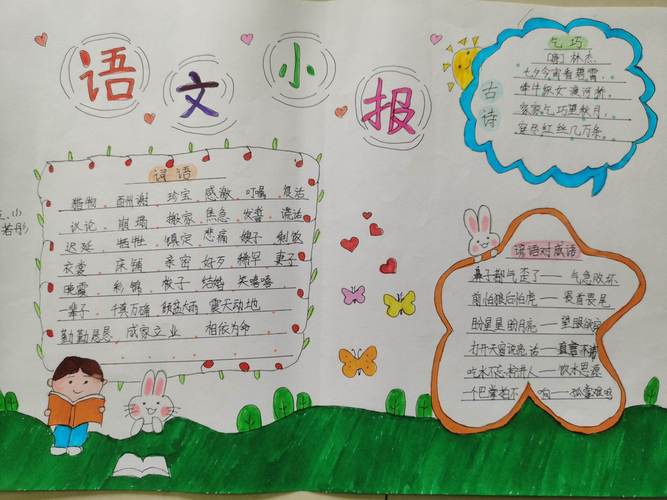 语文小报
词语
猎物 酬谢 珍宝 感激 叮嘱 复活
议论 崩塌 搬家 焦急 发誓 谎话
迟延 牺牲 镇定 悲痛 嫂子 剩饭
衣裳 床铺 亲密 好歹 稍早 妻子
晚霞 彩锦 梭子 结婚 笑嘻嘻
一辈子 千真万确 倾盆大雨 震天动地
勤勤恳恳 成家立业 相依为命
古诗
乞巧
[唐]林杰
七夕今宵看碧霄,
牵牛织女渡河桥。
家家乞巧望秋月,
穿尽红丝几万条。
谚语对成语
鼻子都气歪了——气急败坏
前怕狼后怕虎——畏首畏尾
盼星星盼月亮——望眼欲穿
打开天窗说亮话——直言不讳
吃水不忘挖井人——饮水思源
一个巴掌拍不响——孤掌难鸣